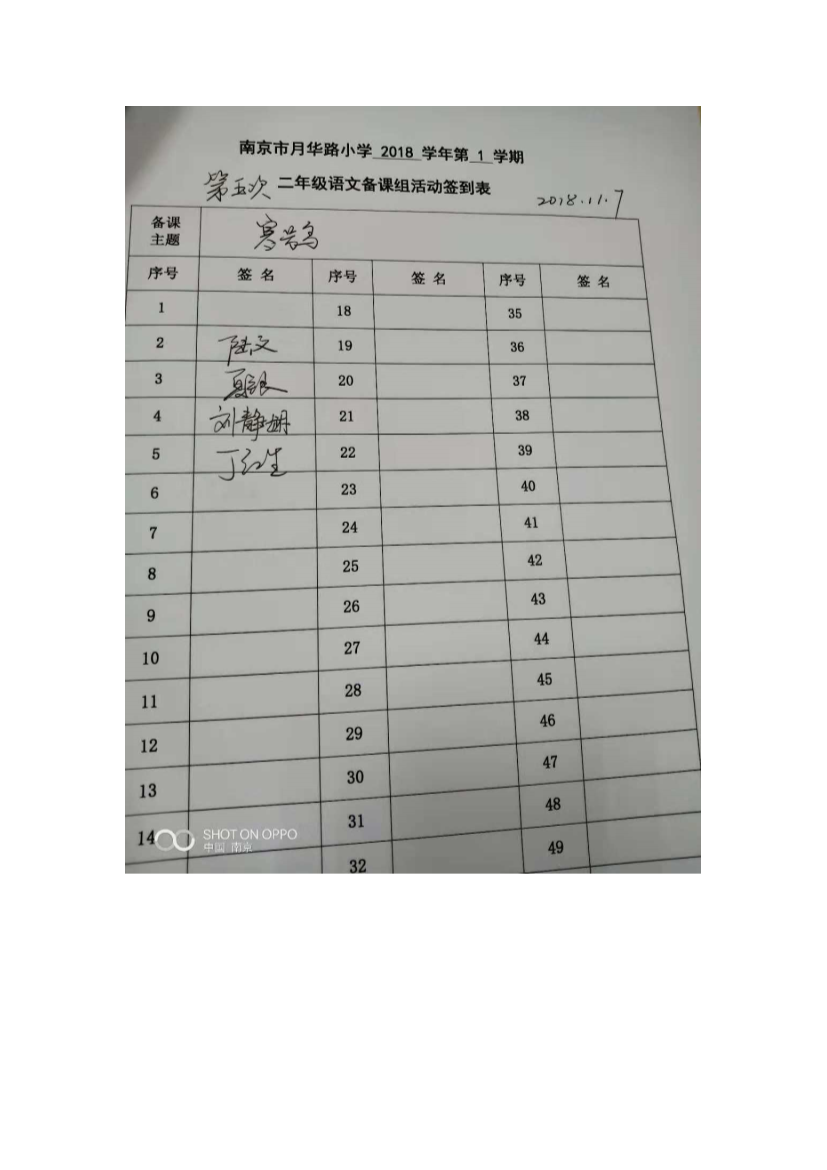 南京市月华路小学 2018 学年第 1 学期
第五次 二年级语文备课组活动签到表 2018.11.7
备课主题 寒号鸟
序号 签 名 序号 签 名 序号 签 名
1 18 35
2 陆文 19 36
3 20 37
4 刘静 21 38
5 丁 22 39
6 23 40
7 24 41
8 25 42
9 26 43
10 27 44
11 28 45
12 29 46
13 30 47
14 31 48
32 49
SHOT ON OPPO
中国 南京